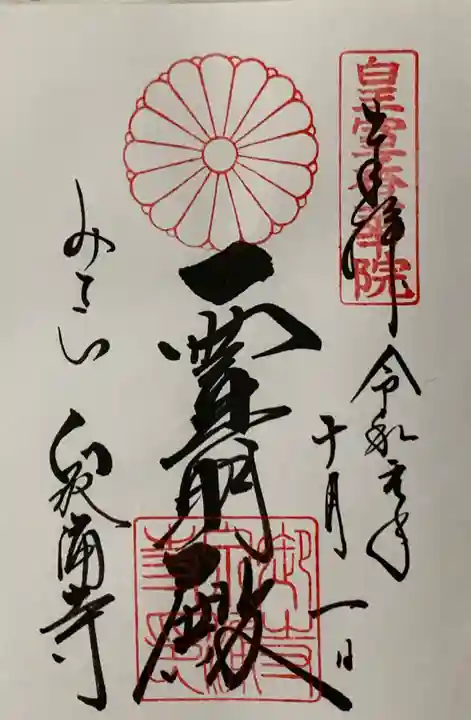 皇室香華院
奉拝
令和元年
十月一日
霊明殿
みてら 泉涌寺